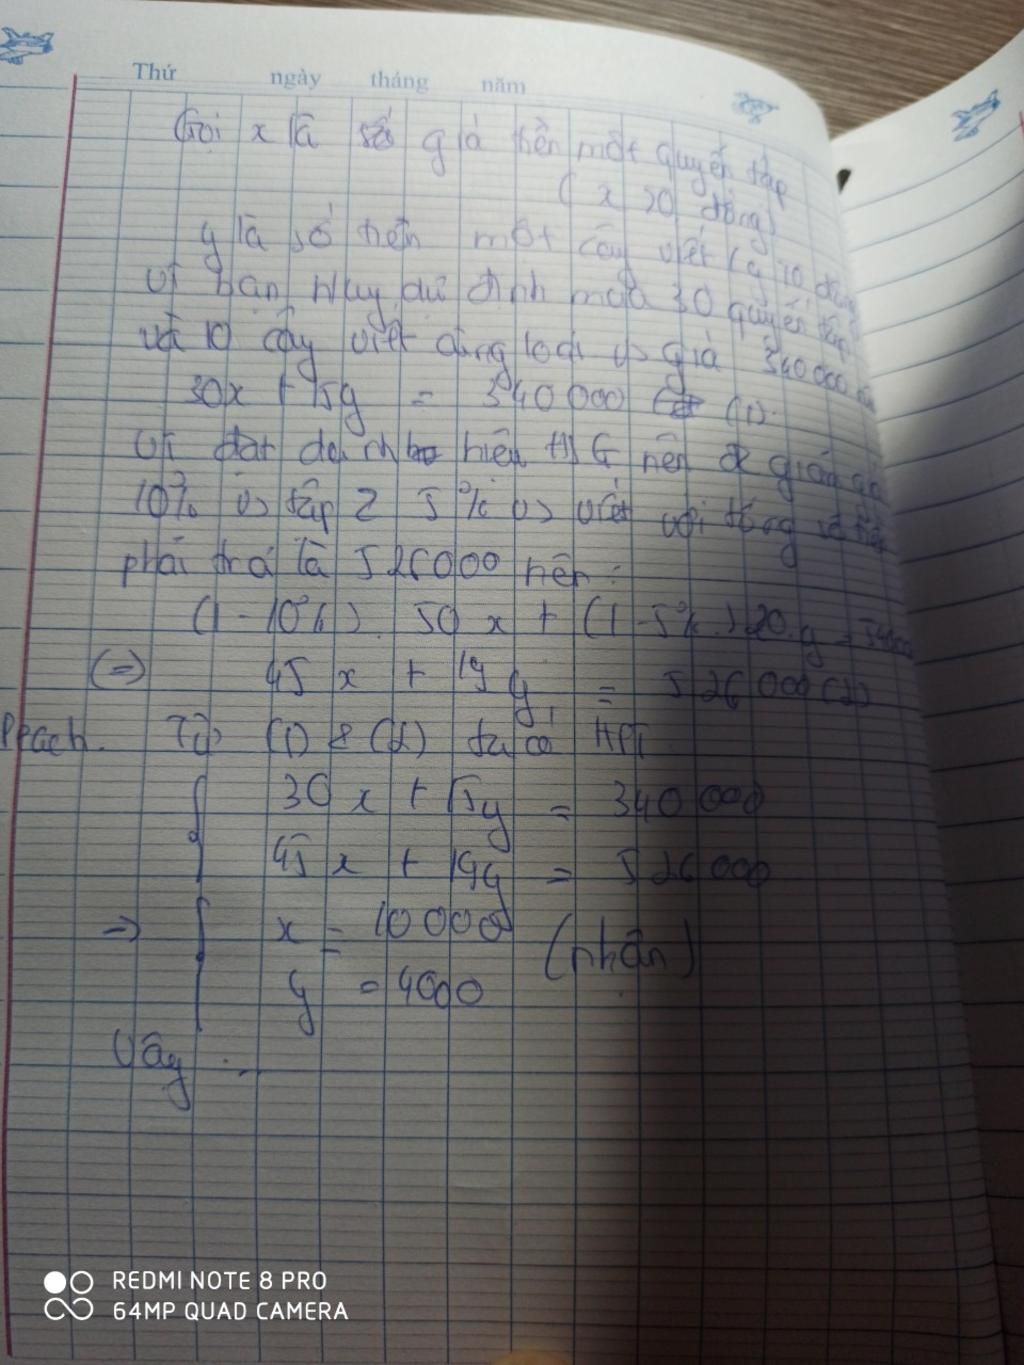 Thứ ngày tháng năm
Gọi x là số giá tiền một quyển tập
( x >0 đồng)
y là số tiền một cây viết (y >0 đồng
Vì bạn Huy dự định mua 30 quyển tập
và 10 cây viết cùng loại giá 340 000
30x + 15y = 340 000 (1).
Vì đạt danh hiệu HSG nên đc giảm giá
10% tập 2 5% viết với tổng số tiền
phải trả là 526000 nên :
(1 - 10%). 50 x + (1 - 5%.) 20.y =
(=) 45 x + 19 y = 526 000 (2)
Từ (1) & (2) ta có HPT
30 x + 15y = 340 000
45 x + 19y = 526 000
=> x = 10 000 (nhận)
y = 4000
Vậy ...
REDMI NOTE 8 PRO
64MP QUAD CAMERA